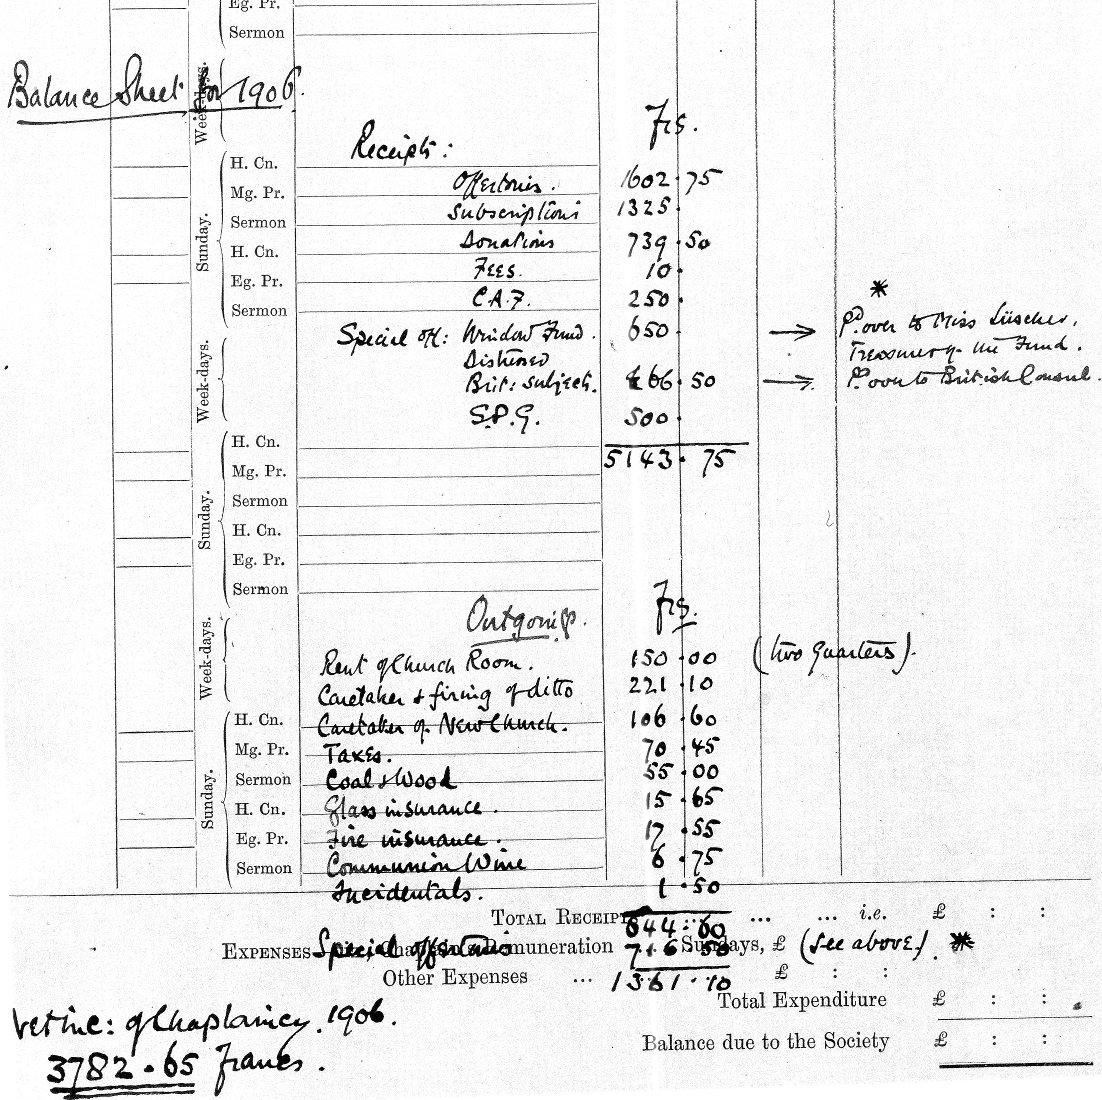 Eg. Pr.
Sermon
Week-days.
Balance Sheet for 1906.
Frs.
Receipts:
H. Cn.
Offertories. 1602.75
Mg. Pr.
Subscriptions 1325.
Sermon
Sunday.
Donations 739.50
H. Cn.
Fees. 10.
Eg. Pr.
C.A.F. 250.
Sermon
*
Special off: Window Fund. 650. → Pd. over to Miss Lüscher,
Treasurer of the Fund.
Week-days.
Distressed
Brit: Subjects. 66.50 → Pd. over to British Consul.
S.P.G. 500.
H. Cn.
5143.75
Mg. Pr.
Sermon
Sunday.
H. Cn.
Eg. Pr.
Sermon
Outgoings. Frs.
Week-days.
Rent of Church Room. 150.00 (two quarters).
Caretaker & firing of ditto 221.10
H. Cn.
Caretaker of New Church. 106.60
Mg. Pr.
Taxes. 70.45
Sermon
Coal & Wood 55.00
Sunday.
H. Cn.
Glass insurance. 15.65
Eg. Pr.
Fire insurance. 17.55
Sermon
Communion Wine 6.75
Incidentals. 1.50
TOTAL RECEIPTS ... ... i.e. £ : :
644.60
EXPENSES Chaplain's Remuneration Sundays, £
Special offertories 716.50 (See above). *
Other Expenses ... £ : :
1361.10
Total Expenditure £ : :
Net inc: of Chaplaincy. 1906.
Balance due to the Society £ : :
3782.65 Francs.